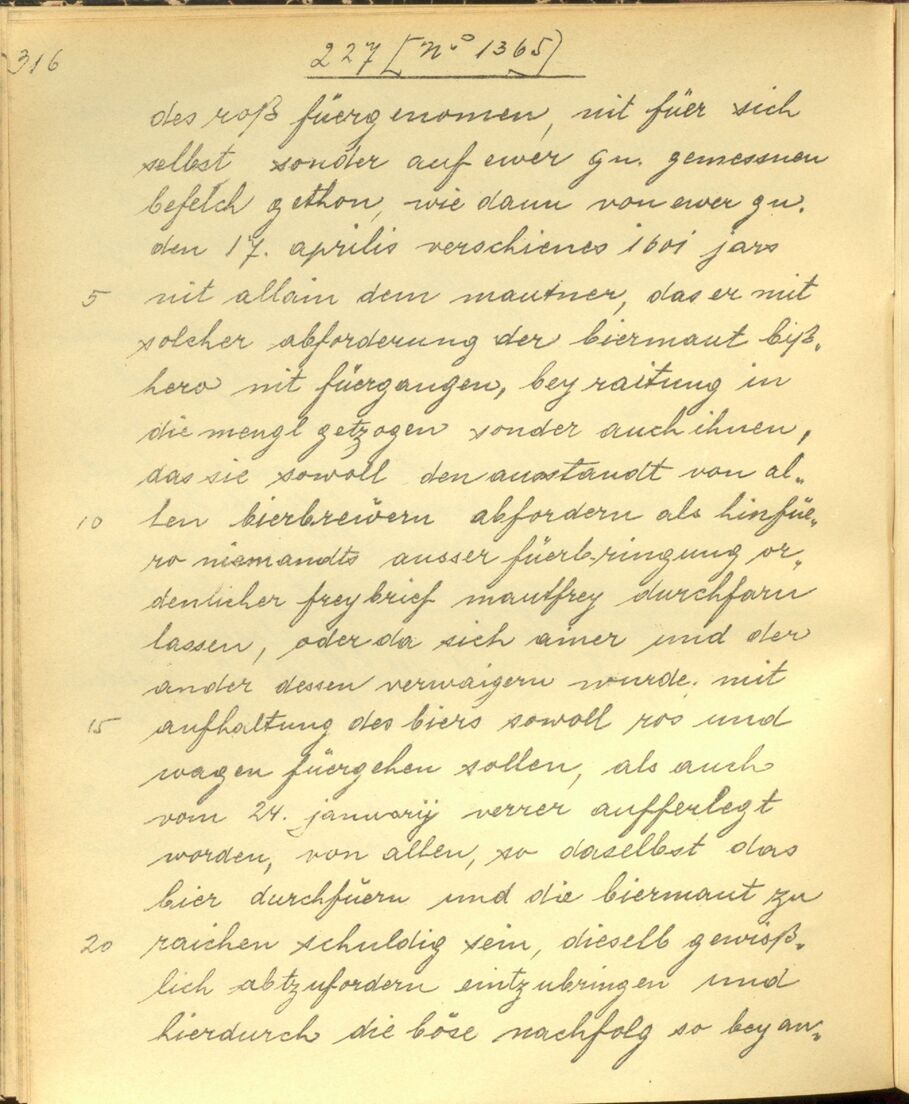 316
227 [No 1365)
des roß füergenomen, nit füer sich
selbst sonder auf ewer gn. gemessnen
befelch gethon, wie dann von ewer gn.
den 17. aprilis verschienes 1601 jars
5 nit allain dem mautner, das er mit
solcher abforderung der biermaut biß„
hero nit füergangen, bey raitung in
die mengl getzogen sonder auch ihnen,
das sie sowoll den ausstandt von al„
10 len bierbrewern abfordern als hinfüe„
ro niemandts ausser füerbringung or„
denlicher freybrief mautfrey durchfarn
lassen, oder da sich ainer und der
ander dessen verwaigern wurde. mit
15 aufhaltung des biers sowoll ros und
wagen füergehen sollen, als auch
vom 24. januarij verrer aufferlegt
worden, von allen, so daselbst das
bier durchfüern und die biermaut zu
20 raichen schuldig sein, dieselb gewiß„
lich abtzufordern eintzubringen und
hierdurch die böse nachfolg so bey an„